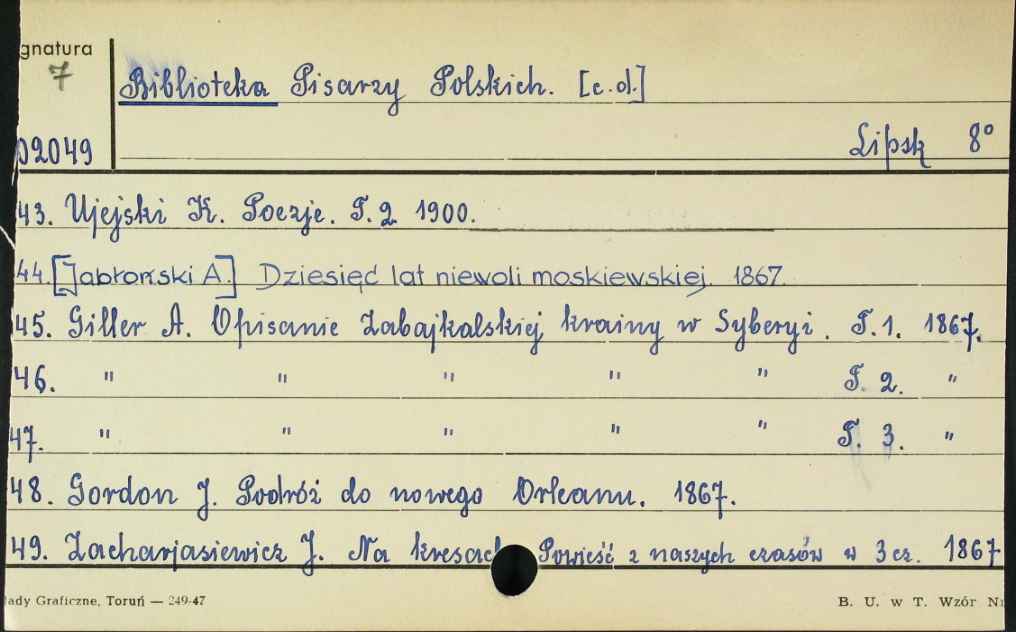 gnatura
7
Biblioteka Pisarzy Polskich. [c.d.]
02049
Lipsk 8°
43. Ujejski K. Poezje. T. 2 1900.
44. [Jabłoński A.] Dziesięć lat niewoli moskiewskiej. 1867.
45. Giller A. Opisanie Zabajkalskiej krainy w Syberyi. T. 1. 1867.
46. " " " " " T. 2. "
47. " " " " " T. 3. "
48. Gordon J. Podróż do nowego Orleanu. 1867.
49. Zacharjasiewicz J. Na kresach Powieść z naszych czasów w 3 cz. 1867
łady Graficzne, Toruń — 249-47
B. U. w T. Wzór Nr